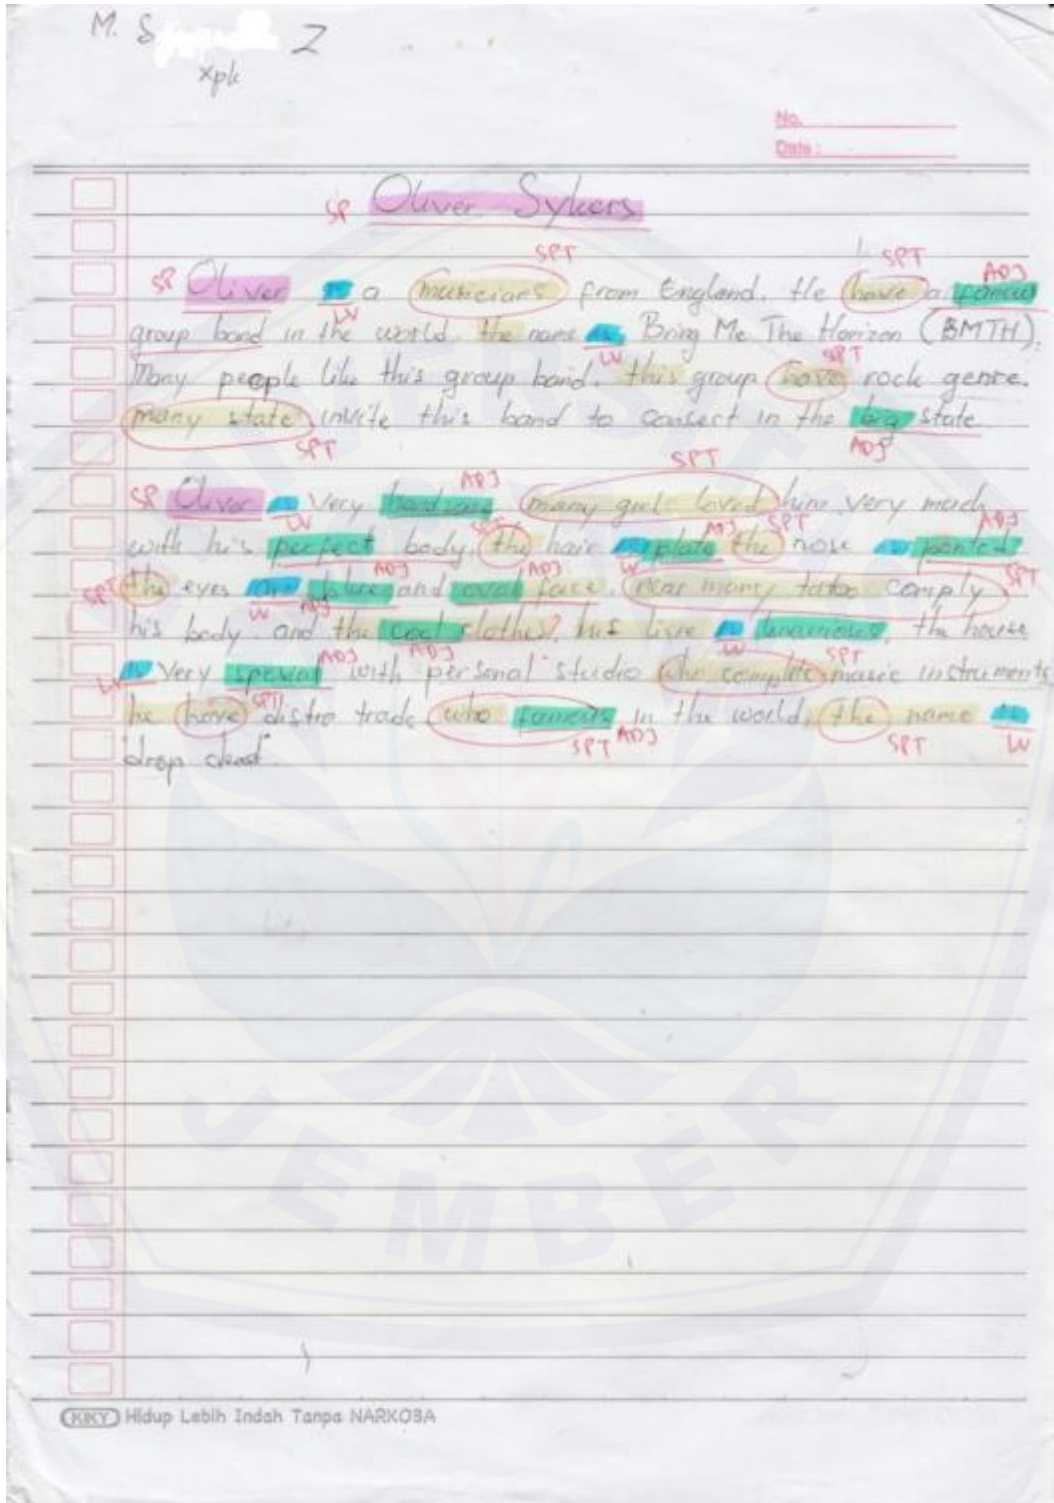 M. S Z
xpk
No.
Date:
SP Oliver Sykers
SPT SPT ADJ
SP Oliver is a musicians from England. He have a famous
LV
group band in the world. the name is Bring Me The Horizon (BMTH).
LV SPT
Many people like this group band. this group have rock genre.
many state invite this band to consert in the big state
SPT ADJ
ADJ SPT
SP Oliver is very handsome many girl loved him very much
LV SPT ADJ SPT ADJ
with his perfect body. the hair is plate the nose is pointed
ADJ LV ADJ SPT
SPT the eyes are blue and oval face. many tatoo comply
LV ADJ
his body. and the cool clothes, his live is luxurious, the house
ADJ ADJ LV SPT
LV is very special with personal studio who complite music instruments
SPT
he have distro trade who famous in the world, the name is
SPT ADJ SPT LV
"drop dead"
JEMBER
KIKY Hidup Lebih Indah Tanpa NARKOBA